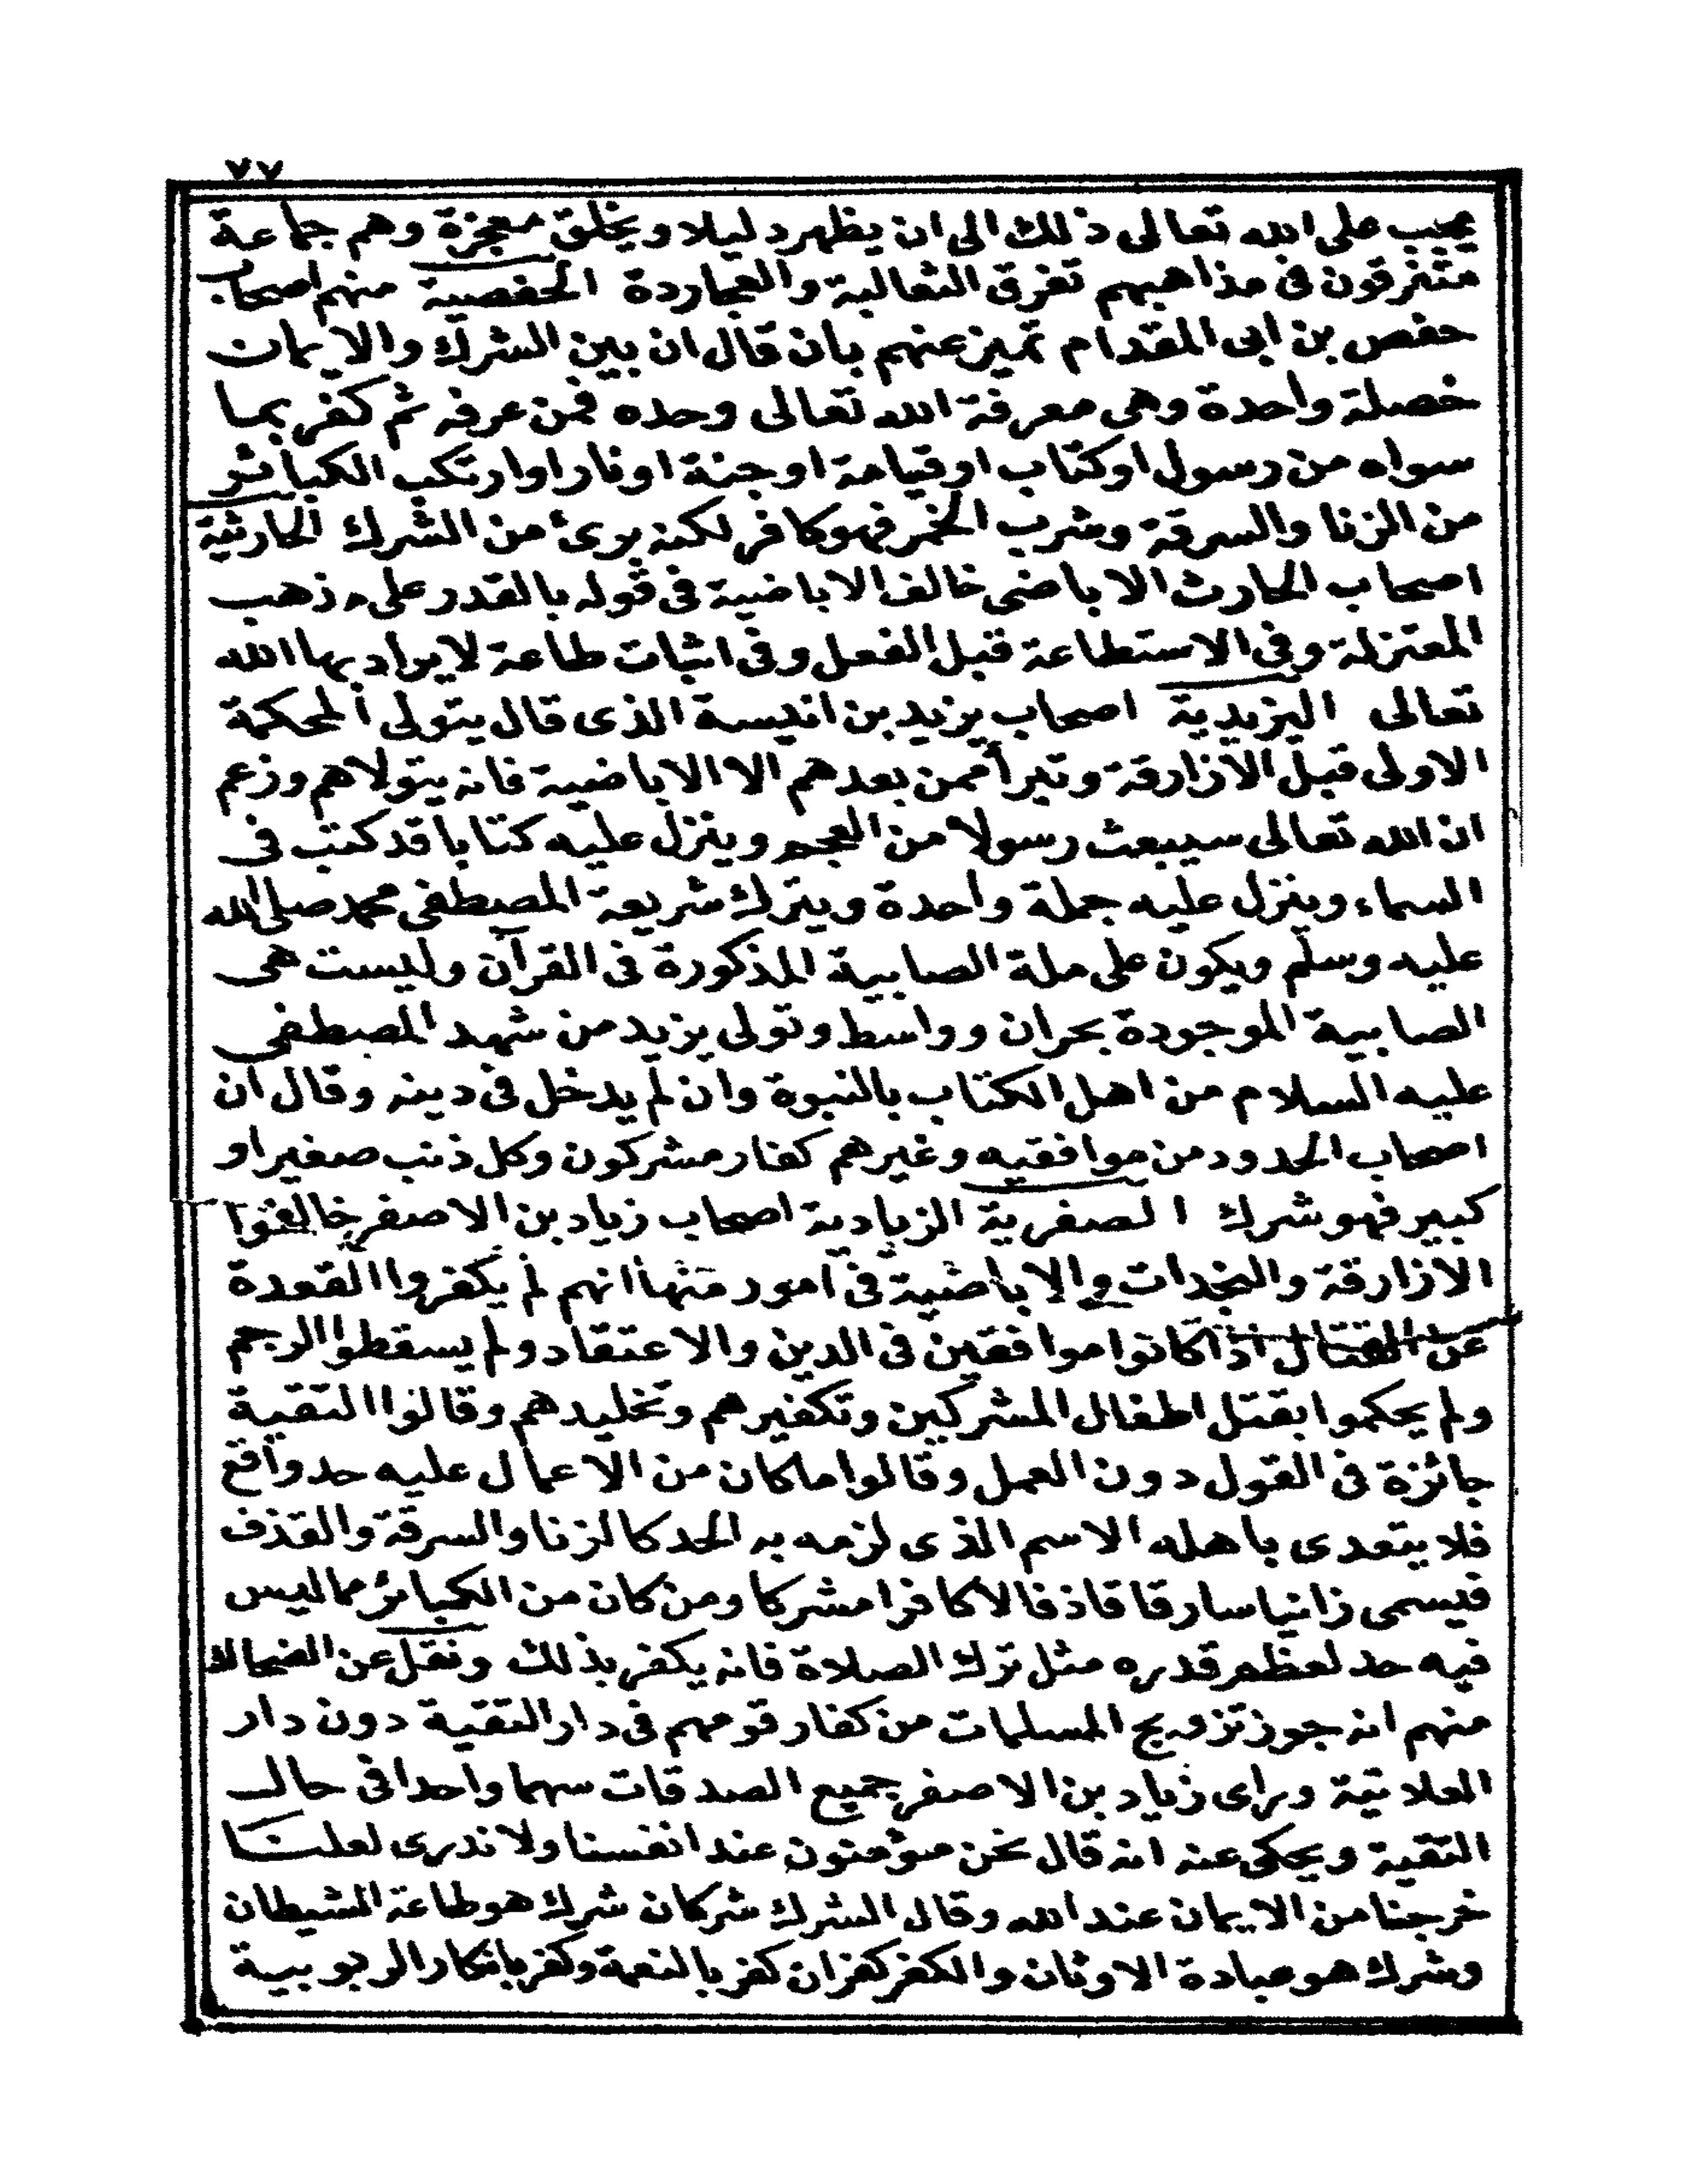 ٧٧
يجب على الله تعالى ذلك الى ان يظهر دليلا ويخلق معجزة وهم جماعة
متفرقون فى مذاهبهم تفرق الثعالبة والعجاردة الحفصية منهم اصحاب
حفص بن ابى المقدام تميز عنهم بان قال ان بين الشرك والايمان
خصلة واحدة وهى معرفة الله تعالى وحده فمن عرفه ثم كفر بما
سواه من رسول او كتاب او قيامة او جنة او نار او ارتكب الكبائر
من الزنا والسرقة وشرب الخمر فهو كافر لكنه برئ من الشرك الحارثية
اصحاب الحارث الاباضى خالف الاباضية فى قوله بالقدر على مذهب
المعتزلة وفى الاستطاعة قبل الفعل وفى اثبات طاعة لا يراد بها الله
تعالى اليزيدية اصحاب يزيد بن انيسة الذى قال يتولى المحكمة
الاولى قبل الازارقة وتبرأ ممن بعدهم الا الاباضية فانه يتولاهم وزعم
ان الله تعالى سيبعث رسولا من العجم وينزل عليه كتابا قد كتب فى
السماء وينزل عليه جملة واحدة ويترك شريعة المصطفى محمد صلى الله
عليه وسلم ويكون على ملة الصابية المذكورة فى القرآن وليست هى
الصابية الموجودة بحران وواسط وتولى يزيد من شهد المصطفى
عليه السلام من اهل الكتاب بالنبوة وان لم يدخل فى دينه وقال ان
اصحاب الحدود من موافقيه وغيرهم كفار مشركون وكل ذنب صغير او
كبير فهو شرك الصفرية الزيادية اصحاب زياد بن الاصفر خالفوا
الازارقة والنجدات والاباضية فى امور منها انهم لم يكفروا القعدة
عن القتال اذا كانوا موافقين فى الدين والاعتقاد ولم يسقطوا الرجم
ولم يحكموا بقتل اطفال المشركين وتكفيرهم وتخليدهم وقالوا التقية
جائزة فى القول دون العمل وقالوا ما كان من الاعمال عليه حد واقع
فلا يتعدى باهله الاسم الذى لزمه به الحد كالزنا والسرقة والقذف
فيسمى زانيا سارقا قاذفا لا كافرا مشركا ومن كان من الكبائر مما ليس
فيه حد لعظم قدره مثل ترك الصلاة فانه يكفر بذلك ونقل عن الضحاك
منهم انه جوز تزويج المسلمات من كفار قومهم فى دار التقية دون دار
العلانية وراى زياد بن الاصفر جميع الصدقات سهما واحدا فى حال
التقية ويحكى عنه انه قال نحن مؤمنون عند انفسنا ولا ندرى لعلنا
خرجنا من الايمان عند الله وقال الشرك شركان شرك هو طاعة الشيطان
وشرك هو عبادة الاوثان والكفر كفران كفر بالنعمة وكفر بانكار الربوبية